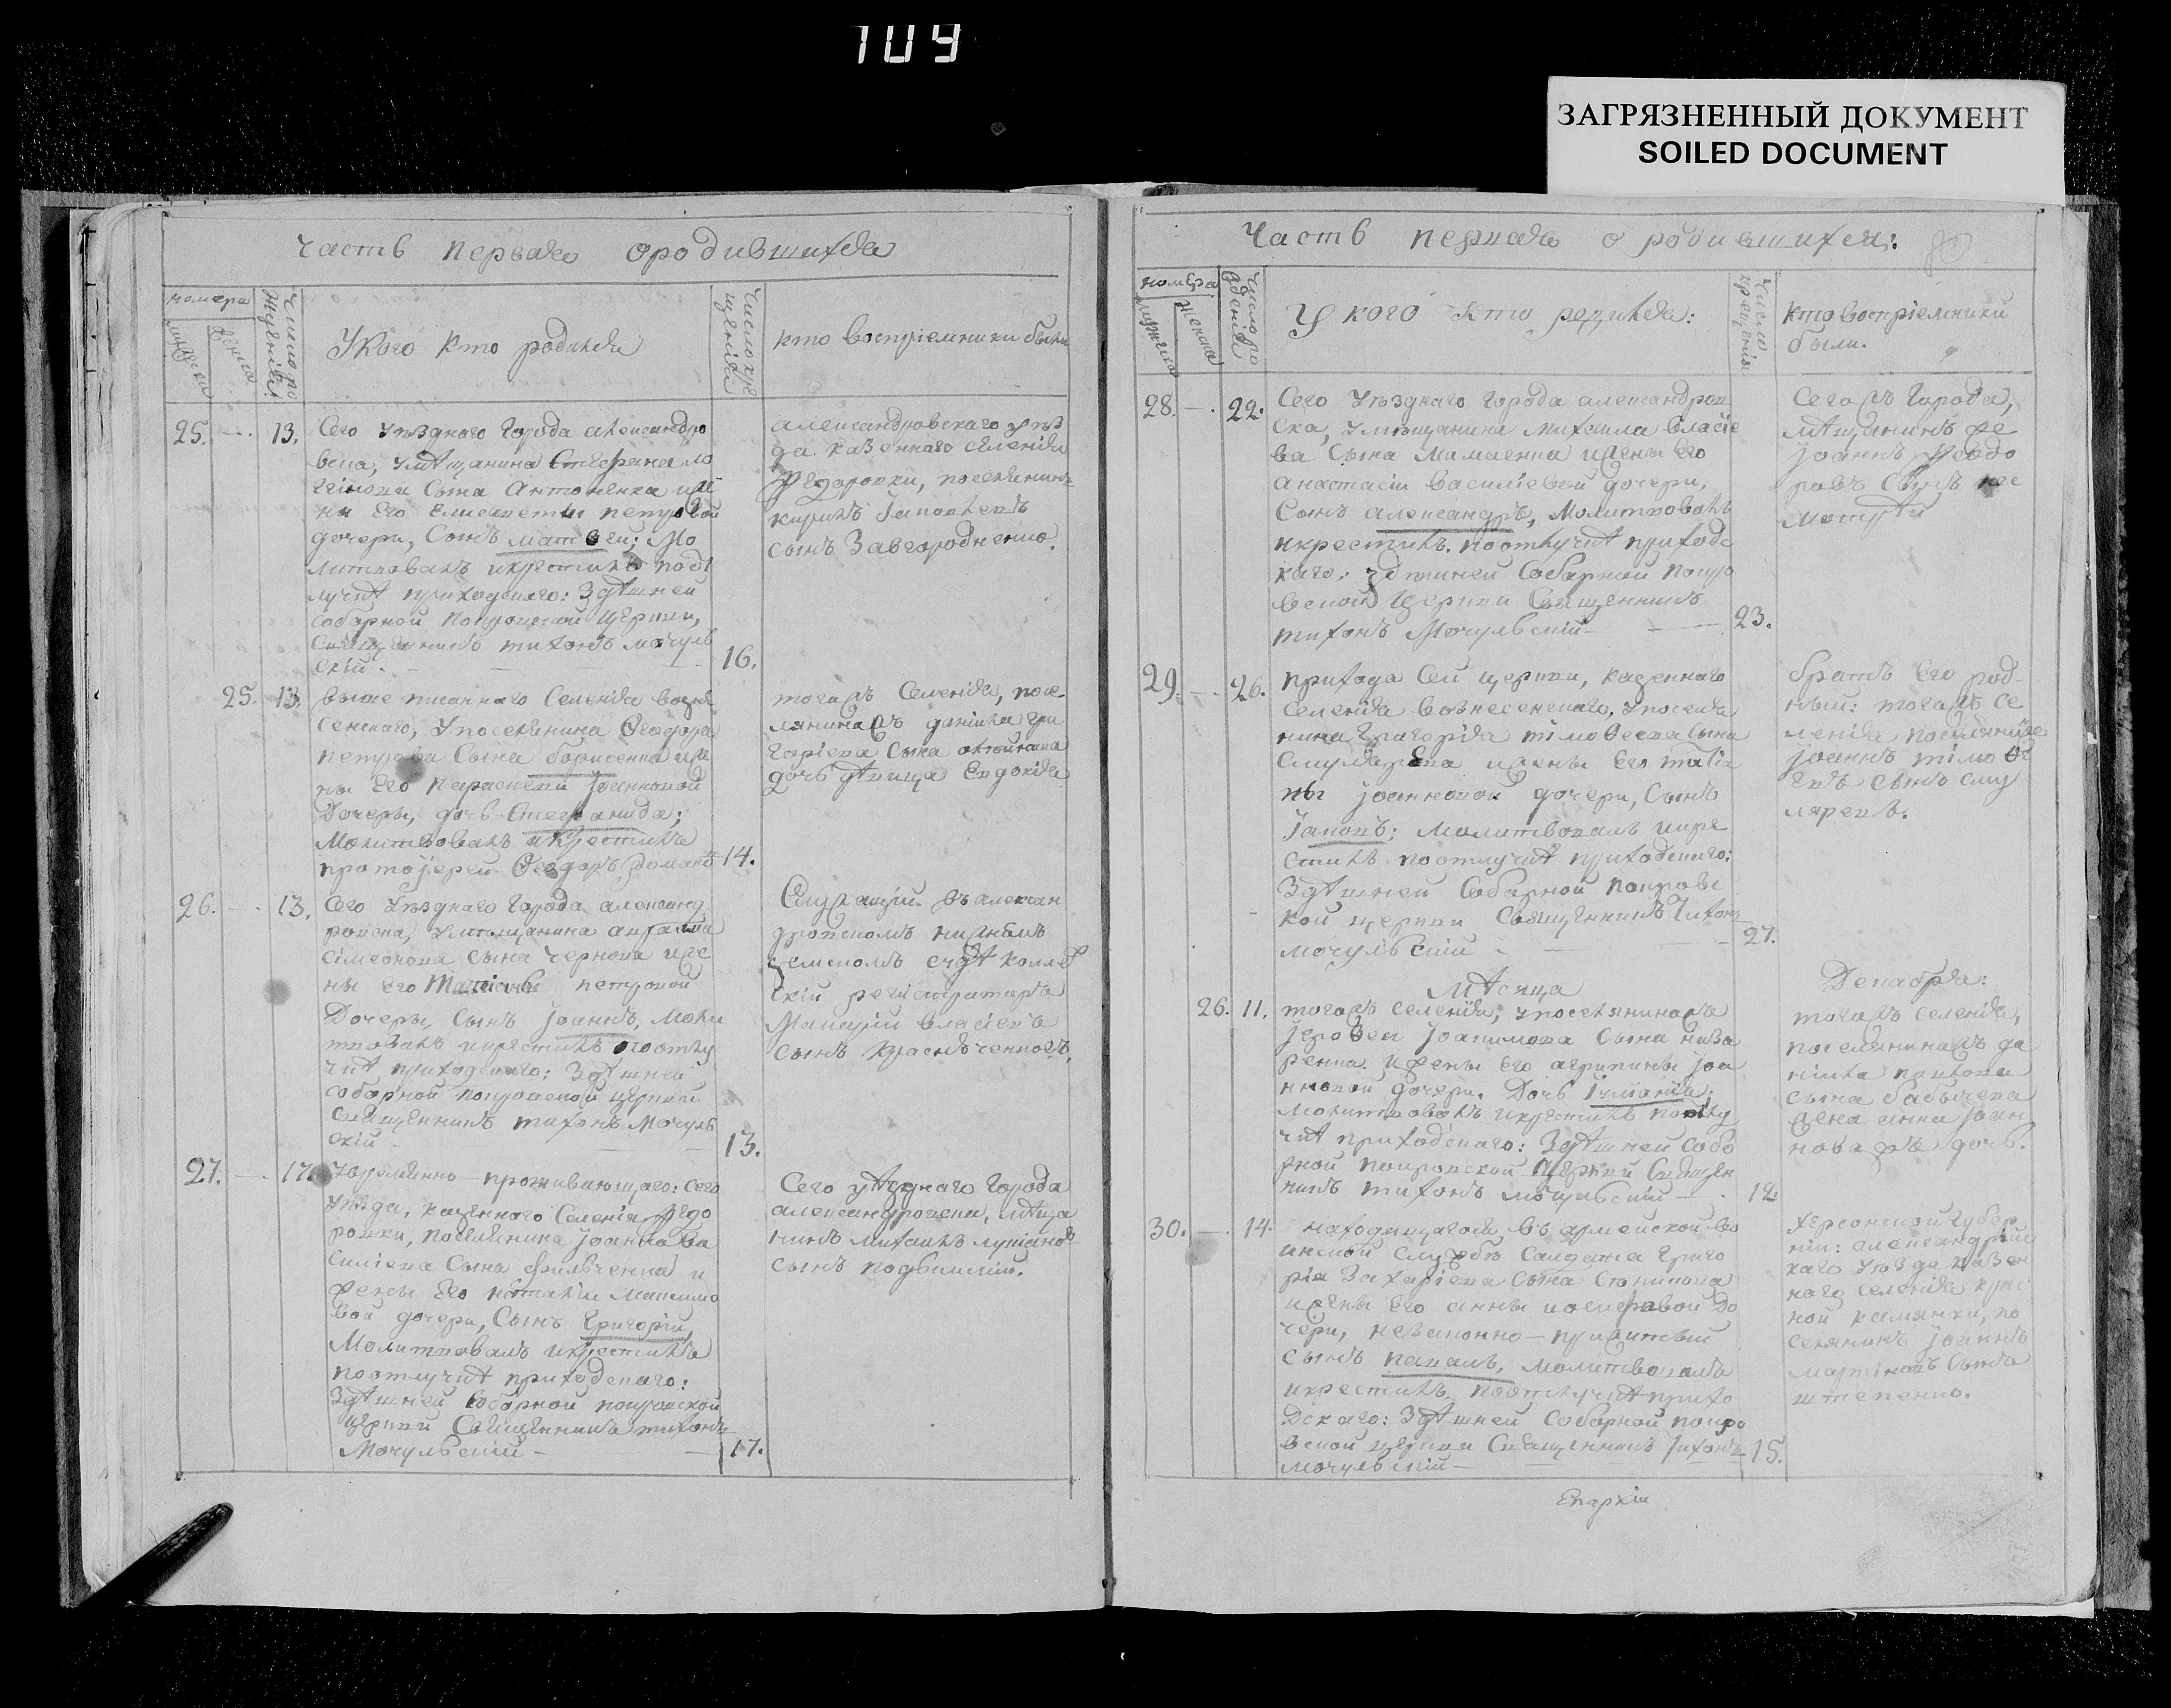 109
ЗАГРЯЗНЕННЫЙ ДОКУМЕНТ
SOILED DOCUMENT
Часть первая о родившихся
номера
Число рожденія
У кого кто родился
Число крещенія
кто воспріемники были
25. — 13.
Сего Уѣзднаго Города Александро
вска, у мѣщанина Стефана Ло
гінова Сына Антоненка и же
ны Его Елисаветы Петровой
дочери, Сынъ Матѳей; Мо
литвовалъ и крестилъ по от
лучкѣ приходскаго: Здѣшней
соборной Покровской церкви,
Священникъ Тихонъ Мочуль
скій. 16.
Александровскаго уѣз
да казеннаго селенія
Федоровки, поселянинъ
Кирилъ Іаковлевъ
сынъ Завгородненко.
25. 13.
выше писаннаго Селенія Возне
сенскаго, у поселянина Ѳеодора
Петрова Сына Борисенка и же
ны Его Параскевіи Іоанновой
Дочери, дочь Стефанида;
Молитвовалъ и крестилъ
протоіерей Ѳеодоръ Романо 14.
тогожъ Селенія, посе
лянинажъ Даніила Гри
горіева Сына
дочь дѣвица Евдокія
26. — 13.
Сего Уѣзднаго Города Александ
ровска, у мѣщанина
Сімеонова сына Чернова и же
ны Его Татіаны Петровой
Дочери, Сынъ Іоаннъ, Моли
твовалъ и крестилъ по отлу
чкѣ приходскаго: Здѣшней
соборной покровской церкви
Священникъ Тихонъ Мочуль
скій — 13.
Служащій въ Алексан
дровскомъ нижнемъ
земскомъ судѣ коллеж
скій регистраторъ
Власіевъ
сынъ
27. — 17.
Временно-проживающаго: сего
Уѣзда, казеннаго Селенія Федо
ровки, поселянина Іоанна Ва
силіева Сына Фильченка и
жены Его Наталіи Максимо
вой дочери, Сынъ Григорій,
Молитвовалъ и крестилъ
по отлучкѣ приходскаго:
Здѣшней соборной покровской
церкви Священникъ Тихонъ
Мочульскій — 17.
Сего уѣзднаго Города
Александровска, мѣща
нинъ Михаилъ Лукіановъ
сынъ
Часть первая о родившихся: 80
номера
Число рожденія
У кого кто родился:
Число крещенія
кто воспріемники
были.
28. — 22.
Сего Уѣзднаго города Александров
ска, у мѣщанина Михаила Власіе
ва Сына Мамаенка и жены Его
Анастасіи Василіевой дочери,
Сынъ Александръ, Молитвовалъ
и крестилъ по отлучкѣ приходс
каго: здѣшней Соборной Покро
вской Церкви Священникъ
Тихонъ Мочульскій — 23.
Сегожъ Города,
мѣщанинъ
Іоаннъ Ѳеодо
ровъ Сынъ
29. — 26.
прихода Сей церкви, казеннаго
Селенія Вознесенскаго, у поселя
нина Григорія Тімоѳеева Сына
и жены Его Татіа
ны Іоанновой дочери, Сынъ
Іаковъ; Молитвовалъ и кре
стилъ по отлучкѣ приходскаго:
Здѣшней Соборной Покровс
кой церкви Священникъ Тихонъ
Мочульскій — 27.
братъ Его род
ный: тогожъ Се
ленія поселянинъ
Іоаннъ Тімоѳе
евъ сынъ
Мѣсяца Декабря:
26. 11.
тогожъ селенія, у поселянинажъ
Іероѳея Іоакимова Сына Наза
ренка и жены Его Агрипины Іоа
нновой дочери, Дочь Іуліанія,
Молитвовалъ и крестилъ по отлу
чкѣ приходскаго: Здѣшней Собо
рной Покровской Церкви Священ
никъ Тихонъ Мочульскій — 12.
тогожъ селенія,
поселянинажъ Да
ніила Павлова
сына Бабичева
жена Анна Іоан
нова дочь.
30. — 14.
находящагося въ армейской во
инской службѣ Солдата Григо
рія Захаріева Сына
и жены Его Анны Іосифовой До
чери, незаконно-прижитый
сынъ Павелъ, молитвовалъ
и крестилъ, по отлучкѣ прихо
дскаго: Здѣшней Соборной Покро
вской церкви Священникъ Тихонъ
Мочульскій — 15.
Херсонской Губер
ніи: Александрійс
каго Уѣзда казен
наго Селенія Крас
ной Каменки, по
селянинъ Іоаннъ
Мартіновъ Сынъ
Штепенко.
Епархіи